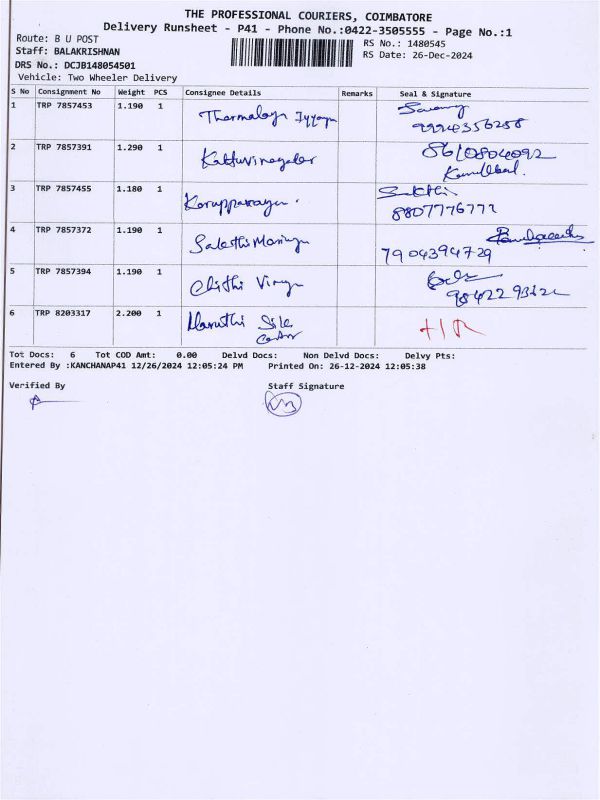 THE PROFESSIONAL COURIERS, COIMBATORE
Delivery Runsheet - P41 - Phone No.:0422-3505555 - Page No.:1
Route: B U POST
RS No.: 1480545
Staff: BALAKRISHNAN
RS Date: 26-Dec-2024
DRS No.: DCJB148054501
Vehicle: Two Wheeler Delivery
S No Consignment No Weight PCS Consignee Details Remarks Seal & Signature
1 TRP 7857453 1.190 1
2 TRP 7857391 1.290 1 Kattuvinayagar 8610804092
3 TRP 7857455 1.180 1 Karupparayan. Sakthi
8807776777
4 TRP 7857372 1.190 1 Sakthi
7904394729
5 TRP 7857394 1.190 1
6 TRP 8203317 2.200 1 Maruthi
Tot Docs: 6 Tot COD Amt: 0.00 Delvd Docs: Non Delvd Docs: Delvy Pts:
Entered By :KANCHANAP41 12/26/2024 12:05:24 PM Printed On: 26-12-2024 12:05:38
Verified By Staff Signature